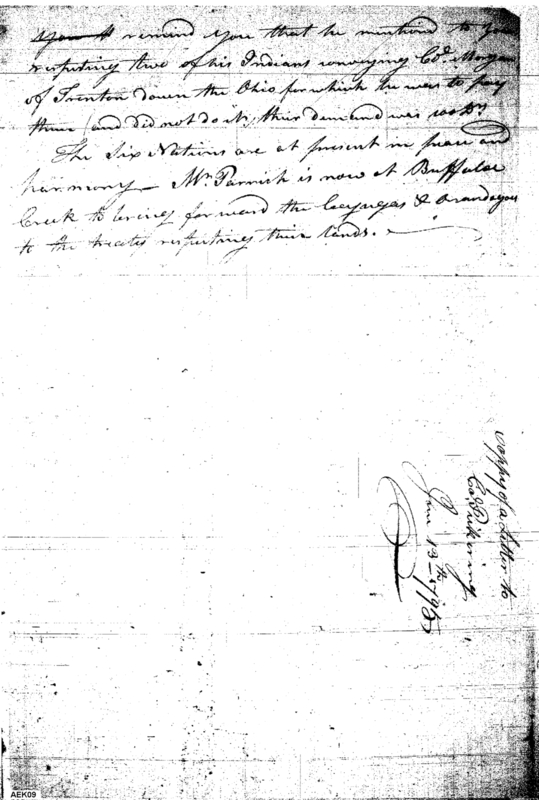 remind you that he mentiond to you
respecting two of his Indians conveying Col Morgan
of Trenton down the Ohio for which he was to pay
them (and did not do it) their demand was
The Six Nations are at present in peace and
harmony — Mr Parrish is now at Buffaloe
Creek to bring forward the Cayugas & Onandagas
to the treaty respecting their lands. —
Coppy of a Letter to
Col Pickering
June 13th 1795
AEK09